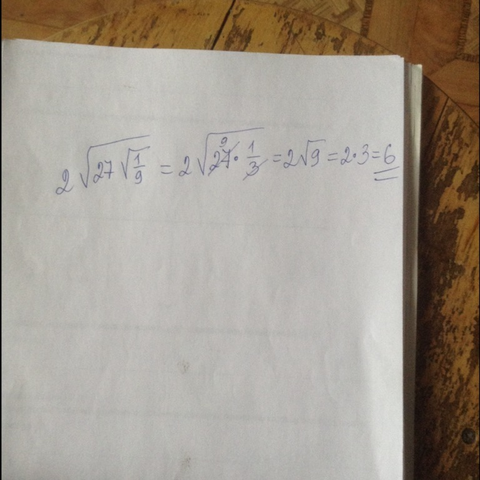 2√(27√(1/9)) = 2√(27^9 · 1/3) = 2√9 = 2·3 = 6